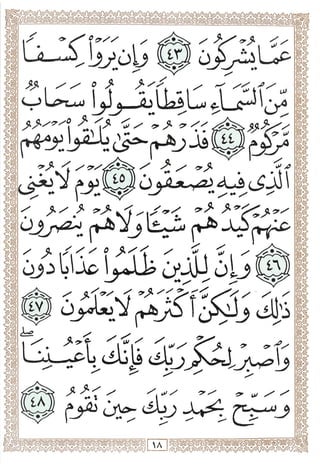 عَمَّا يُشْرِكُونَ ٤٣ وَإِن يَرَوْا۟ كِسْفًا
مِّنَ ٱلسَّمَآءِ سَاقِطًا يَقُولُوا۟ سَحَابٌ
مَّرْكُومٌ ٤٤ فَذَرْهُمْ حَتَّىٰ يُلَـٰقُوا۟ يَوْمَهُمُ
ٱلَّذِى فِيهِ يُصْعَقُونَ ٤٥ يَوْمَ لَا يُغْنِى
عَنْهُمْ كَيْدُهُمْ شَيْـًٔا وَلَا هُمْ يُنصَرُونَ
٤٦ وَإِنَّ لِلَّذِينَ ظَلَمُوا۟ عَذَابًا دُونَ
ذَٰلِكَ وَلَـٰكِنَّ أَكْثَرَهُمْ لَا يَعْلَمُونَ ٤٧
وَٱصْبِرْ لِحُكْمِ رَبِّكَ فَإِنَّكَ بِأَعْيُنِنَا ۖ
وَسَبِّحْ بِحَمْدِ رَبِّكَ حِينَ تَقُومُ ٤٨
١٨